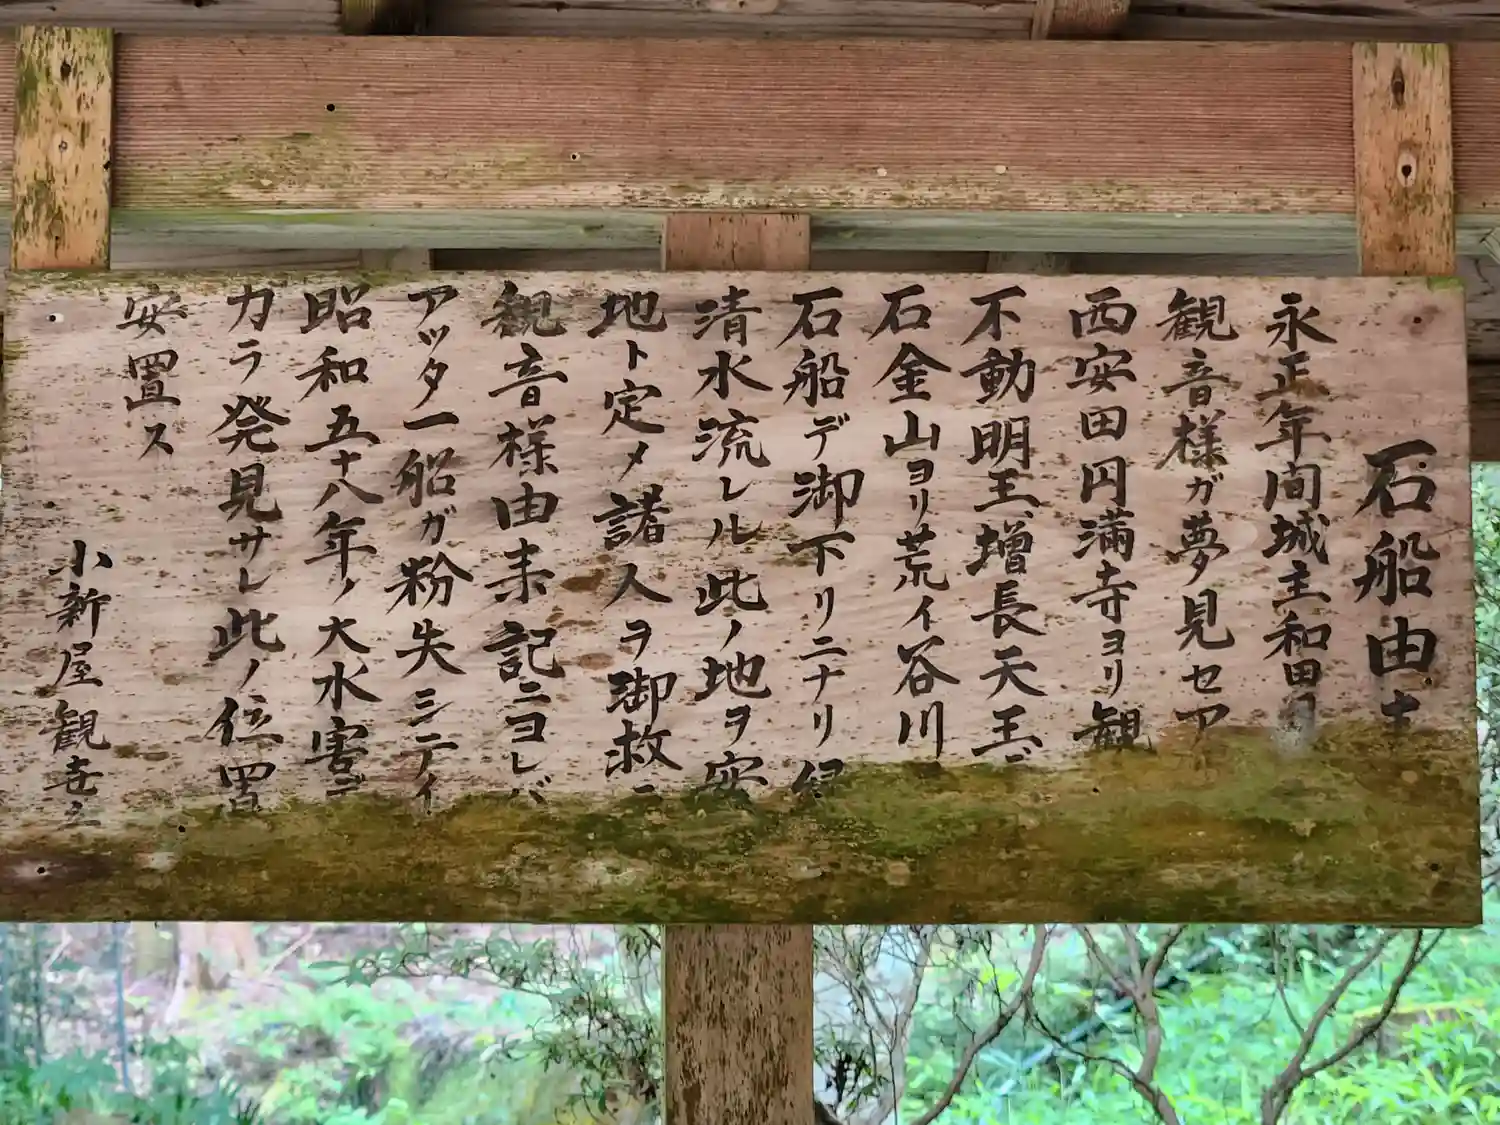 石船由来
永正年間城主和田
観音様ガ夢見セア
西安田円満寺ヨリ観
不動明王、増長天王、
石金山ヨリ荒イ谷川
石船デ御下リニナリ
清水流レル此ノ地ヲ安
地ト定メ諸人ヲ御救
観音様由来記ニヨレバ
アッタ一船ガ粉失シテイ
昭和五十八年ノ大水害デ
カラ発見サレ此ノ位置
安置ス
小新屋観音